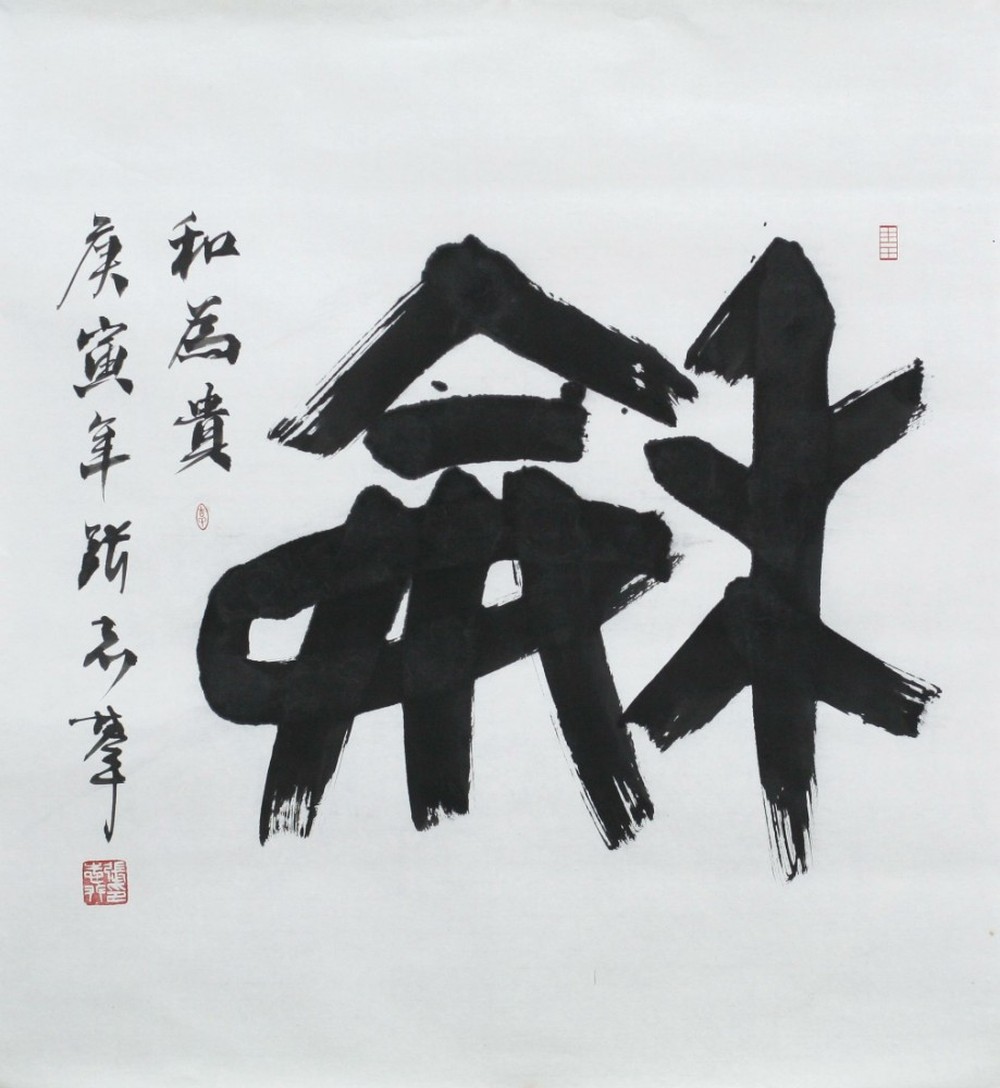 龢
和為貴
庚寅年張志